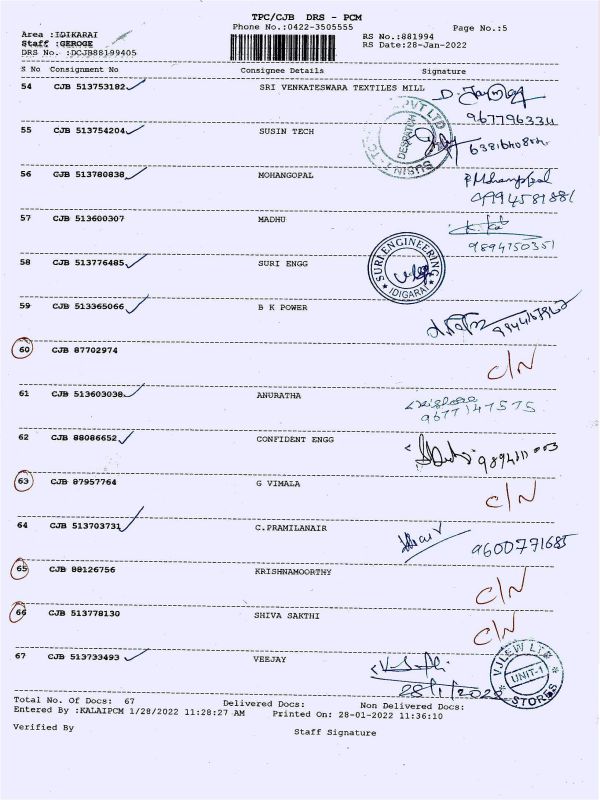 TPC/CJB DRS - PCM
Phone No.:0422-3505555 Page No.:5
Area :IDIKARAI RS No.:881994
Staff :GEROGE RS Date:28-Jan-2022
DRS No. :DCJB88199405
S No Consignment No Consignee Details Signature
54 CJB 513753182 SRI VENKATESWARA TEXTILES MILL
9677963311
55 CJB 513754204 SUSIN TECH
PVT LTD
DESPATCH
56 CJB 513780838 MOHANGOPAL
9994581881
57 CJB 513600307 MADHU
9894750351
58 CJB 513776485 SURI ENGG
SURI ENGINEERING
IDIGARAI
59 CJB 513365066 B K POWER
60 CJB 87702974
C/N
61 CJB 513603038 ANURATHA
9677147575
62 CJB 88086652 CONFIDENT ENGG
63 CJB 87957764 G VIMALA
C/N
64 CJB 513703731 C.PRAMILANAIR
9600771685
65 CJB 88126756 KRISHNAMOORTHY
C/N
66 CJB 513778130 SHIVA SAKTHI
C/N
67 CJB 513733493 VEEJAY
VJLEW LTD
UNIT-1
STORES
28/1/2022
Total No. Of Docs: 67 Delivered Docs: Non Delivered Docs:
Entered By :KALAIPCM 1/28/2022 11:28:27 AM Printed On: 28-01-2022 11:36:10
Verified By Staff Signature